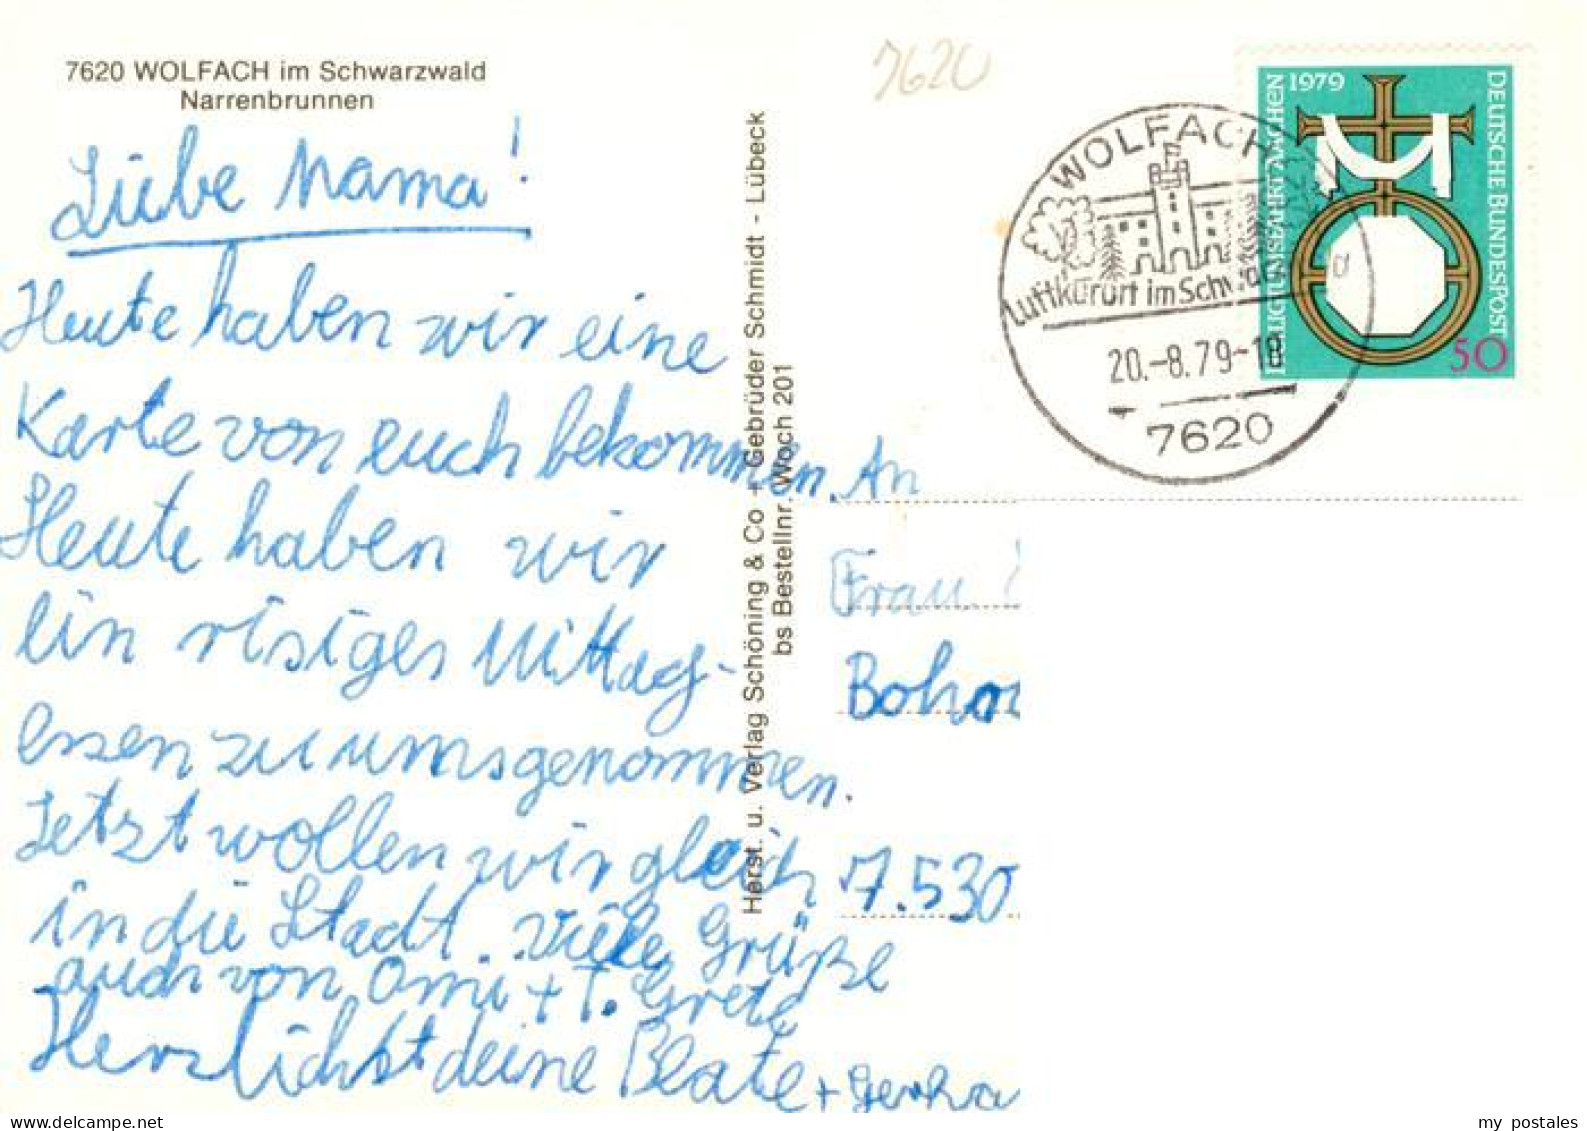 7620 WOLFACH im Schwarzwald
Narrenbrunnen
Liebe Mama!
Heute haben wir eine
Karte von euch bekommen.
Heute haben wir
ein risiges Mittag-
essen zu ums genommen.
Jetzt wollen wir gleich
in die Stadt. Viele Grüße
auch von Omi + T. Grete
Herzlichst deine Beate + Gerha
Herst. u. Verlag Schöning & Co + Gebrüder Schmidt - Lübeck
bs Bestellnr. Woch 201
7620
WOLFACH
Luftkurort im
20.-8.79-18
7620
1979
HEILIGTUMSFAHRT AACHEN
DEUTSCHE BUNDESPOST
50
An
Frau
7.530
my postales